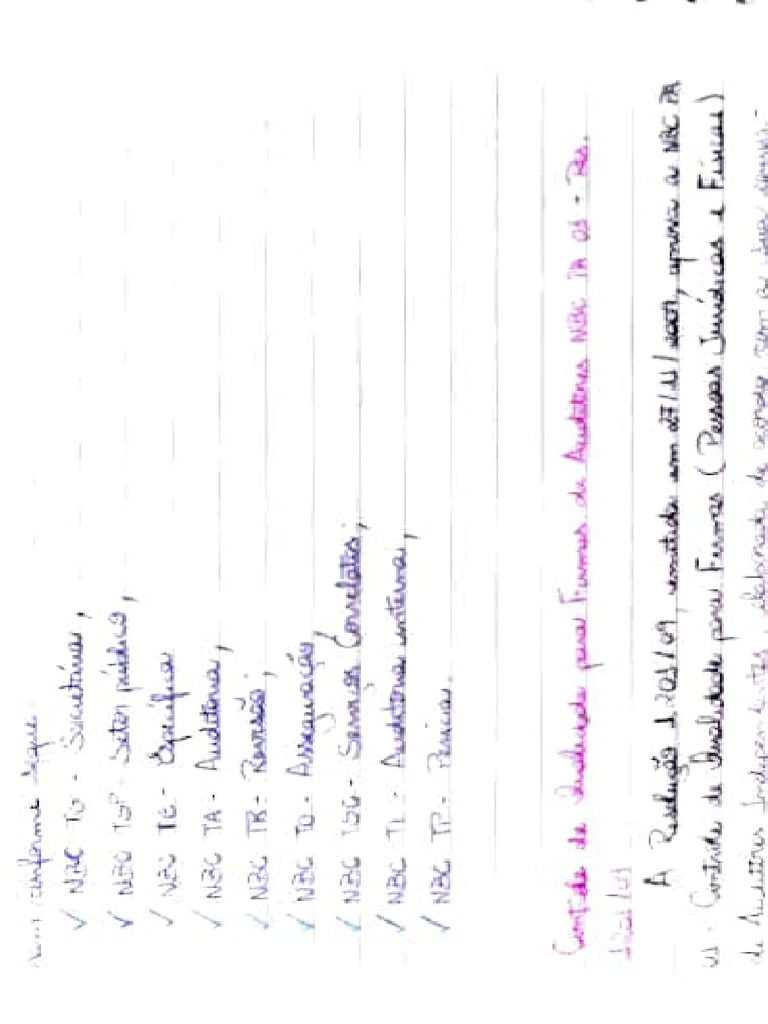 conforme segue:
✓ NBC TG - Societária;
✓ NBC TSP - Setor público;
✓ NBC TE - Específica
✓ NBC TA - Auditoria;
✓ NBC TR - Revisão;
✓ NBC TO - Asseguração;
✓ NBC TSC - Serviços Correlatos;
✓ NBC TI - Auditoria interna;
✓ NBC TP - Perícia.
Controle de Qualidade para Firmas de Auditores NBC PA 01 - Res.
1201/09
A Resolução 1.201/09, emitida em 27/11/2009, aprova a NBC PA
01 - Controle de Qualidade para Firmas (Pessoas Jurídicas e Físicas)
de Auditores Independentes, elaborada de acordo com a sua